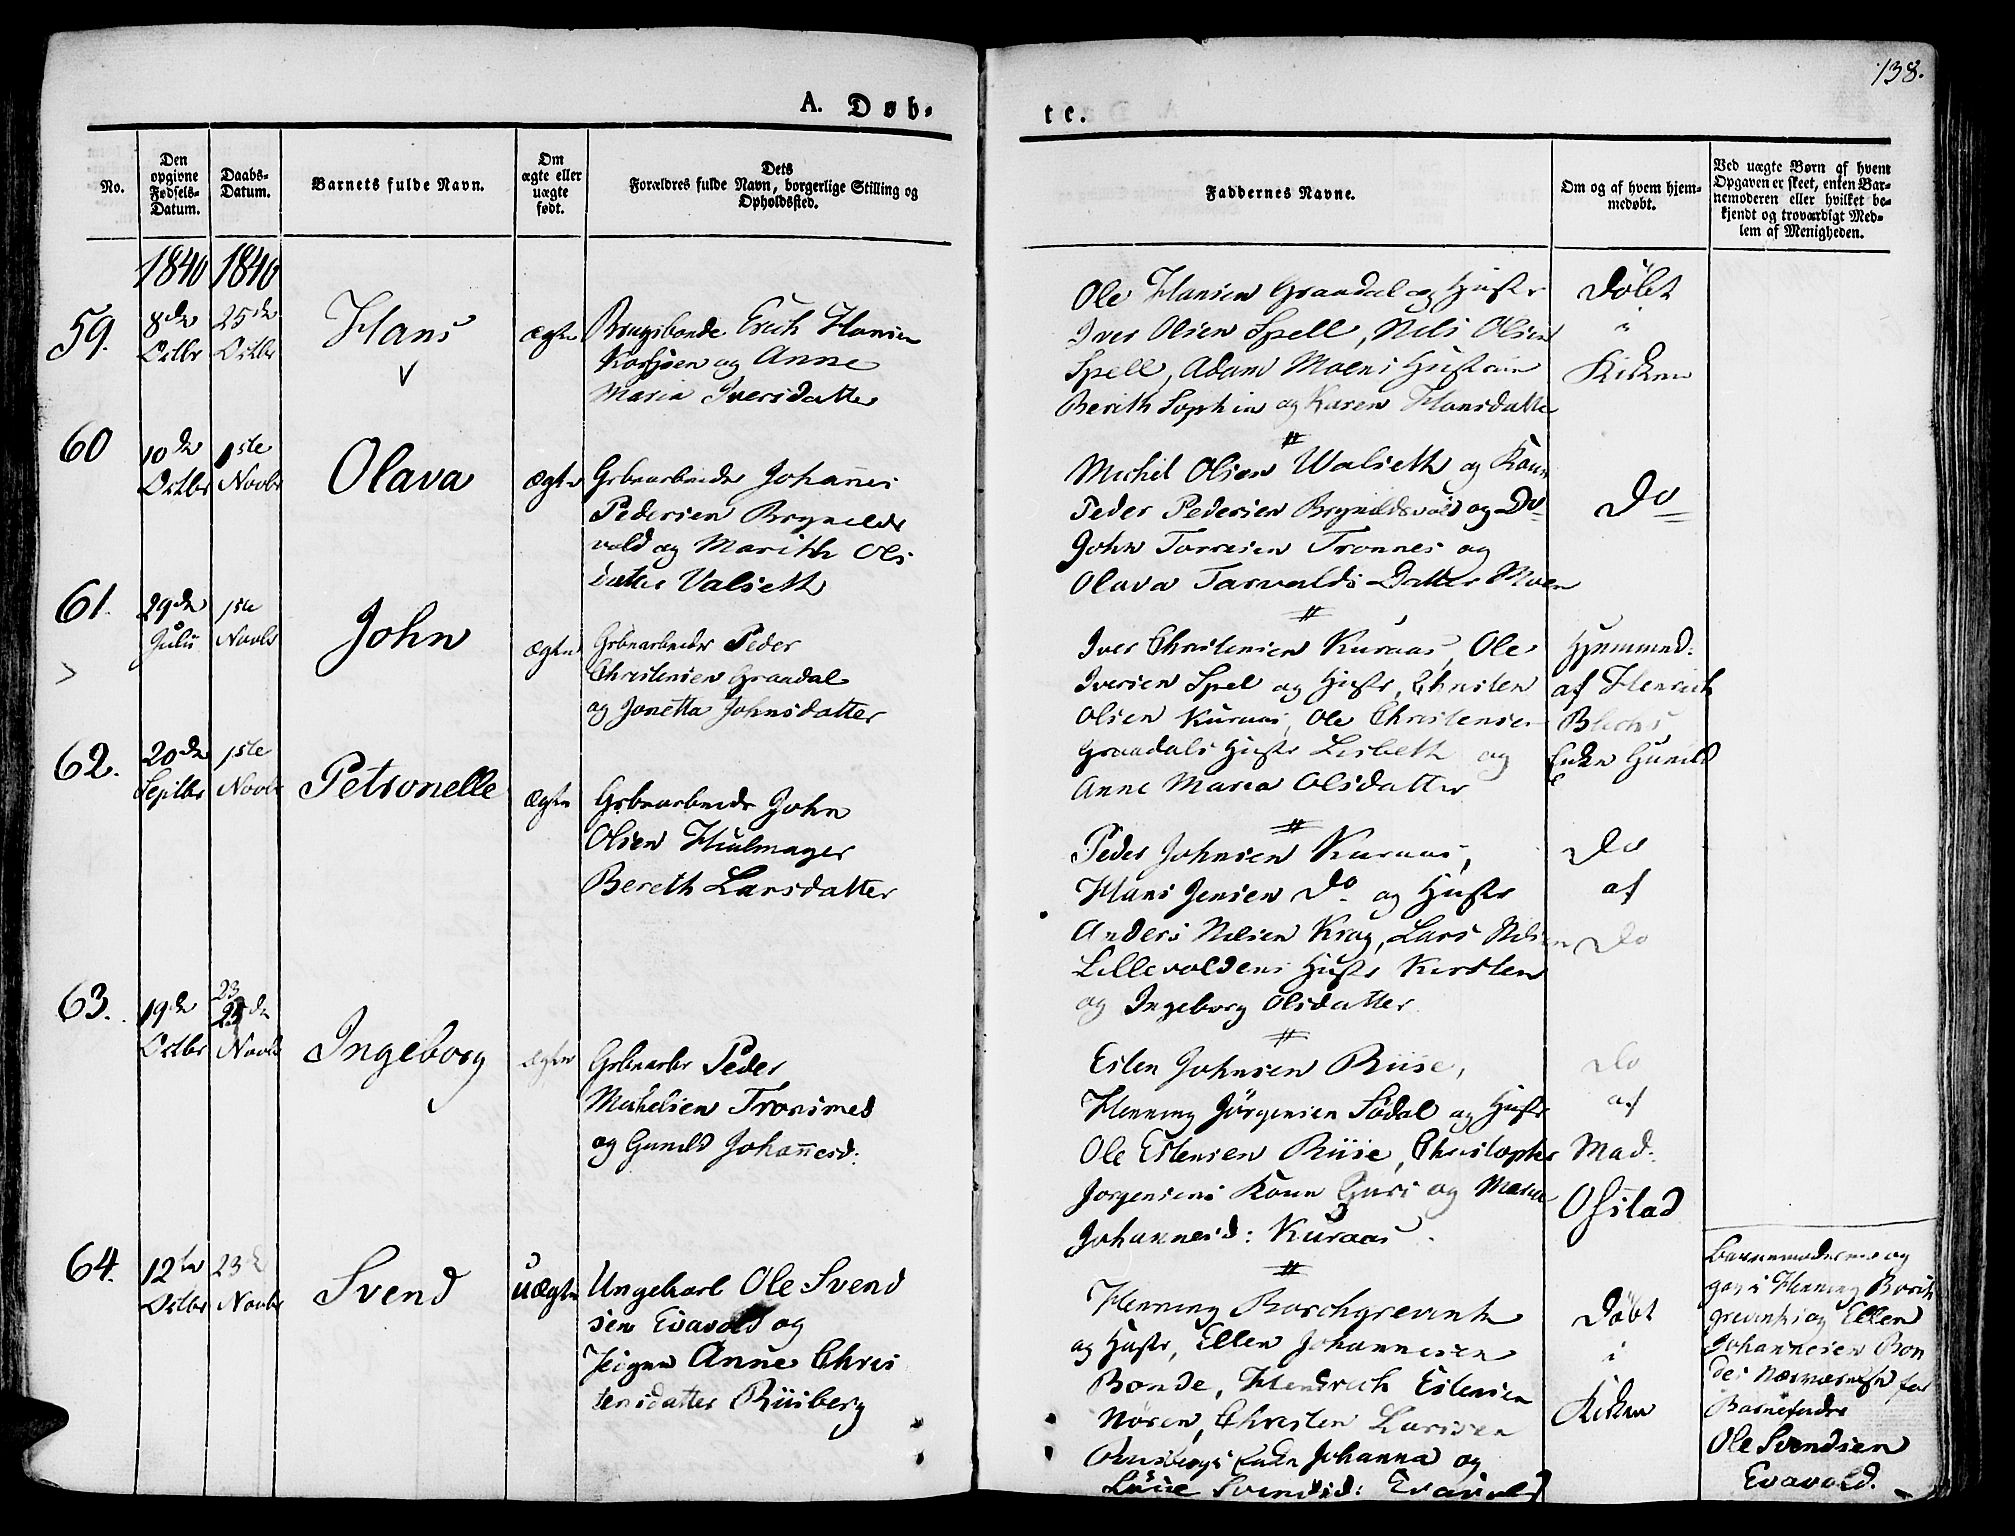 138.
A. Døb-
te.
No.
Den
opgivne
Fødsels-
Datum.
Daabs-
Datum.
Barnets fulde Navn.
Om
ægte eller
uægte
født.
Dets
Forældres fulde Navn, borgerlige Stilling og
Opholdssted.
Faddernes Navne.
Om og af hvem hjem-
medøbt.
Ved uægte Børn af hvem
Opgaven er skeet, enten Bar-
nemoderen eller hvilket be-
kjendt og troværdigt Med-
lem af Menigheden.
1840 1840
59.
8de
Octbr
25de
Octbr
Hans
ægte
Brugsbonde Erich Hansen
og Anne
Maria Iversdatter
Ole Hansen Graadal og Hustr
Iver Olsen Spell, Nils Olsen
Spell, Adam Moens Hustrue
Berith Sophia og Karen Hansdatter
Døbt
i
Kirken
60
10de
Octbr
1ste
Novbr
Olava
ægte
Grbearbeider Johannes
Pedersen Brynilds
vold og Marith Ols
datter Valseth
Michel Olsen Walseth og Kone
Peder Pedersen Brynildsvold og Do
John Torresen Tronnes og
Olava Tarvalds Datter Moen
Do
61.
29de
Juli
1ste
Novbr
John
ægte
Grbearbeider Peder
Christensen Graadal
og Jonetta Johnsdatter
Iver Christensen Kuraas, Ole
Iversen Spel og Hustr, Christen
Olsen Kuraas, Ole Christensen
Graadals Hustr Lisbeth og
Anne Maria Olsdatter
Hjemmed:
af Henrich
Blechs
Enke Gunild
62.
20de
Septbr
1ste
Novbr
Petronelle
ægte
Grbearbeider John
Olsen Hiulmager
Bereth Larsdatter
Peder Johnsen Kuraas,
Hans Jensen Do og Hustr
Anders Nilsen Krag, Lars Nilsen
Lillevoldens Hustr Kirsten
og Ingeborg Olsdatter
Do
af
Do
63.
19de
Octbr
23
de
Novbr
Ingeborg
ægte
Grbearbr Peder
Michelsen Tronsmed
og Gunild Johannesd:
Esten Johnsen Riise,
Henning Jörgensen Södal og Hustr
Ole Estensen Riise, Christopher
Jorgensens Kone Guri og Maria
Johannesd: Kuraas.
Do
af
Mad:
Ofstad
64.
12te
Octbr
23de
Novbr
Svend
uægte
Ungekarl Ole Svend
sen Evavold og
Peigen Anne Chris
tensdatter Riisberg
Henning Borchgrevenk
og Hustr, Ellen Johannesen
Bonde, Hendrich Estensen
Nören, Christen Larsen
Enke Johanna og
Lovise Svendsd: Evavold
Døbt
i
Kirken
Barnemoderen og
Henning Borch
grevenks og Ellen
Johannesen Bon
des Nærværelse for
Barnefader
Ole Svendsen
Evavold.